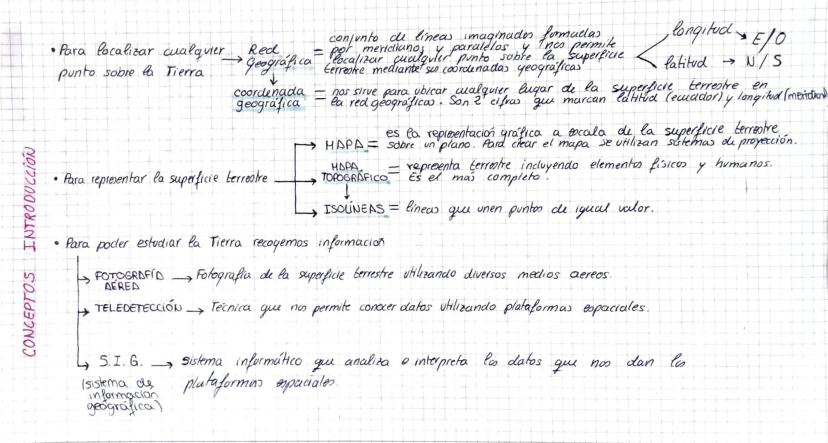 CONCEPTOS INTRODUCCIÓN
• Para localizar cualquier punto sobre la Tierra → Red geográfica = conjunto de líneas imaginadas formadas
por meridianos y paralelos y nos permite
localizar cualquier punto sobre la superficie
terrestre mediante sus coordenadas geográficas
longitud → E/O
latitud → N/S
coordenada geográfica = nos sirve para ubicar cualquier lugar de la superficie terrestre en
la red geográficas. Son 2 cifras que marcan latitud (ecuador) y longitud (meridiano)
• Para representar la superficie terrestre
→ MAPA = es la representación gráfica a escala de la superficie terrestre
sobre un plano. Para crear el mapa se utilizan sistemas de proyección.
→ MAPA TOPOGRÁFICO = representa terrestre incluyendo elementos físicos y humanos.
Es el más completo.
→ ISOLÍNEAS = líneas que unen puntos de igual valor.
• Para poder estudiar la Tierra recogemos información
→ FOTOGRAFÍA AEREA → Fotografía de la superficie terrestre utilizando diversos medios aereos.
→ TELEDETECCIÓN → Técnica que nos permite conocer datos utilizando plataformas espaciales.
→ S.I.G. → sistema informático que analiza e interpreta los datos que nos dan las
(sistema de plataformas espaciales.
informacion
geográfica)